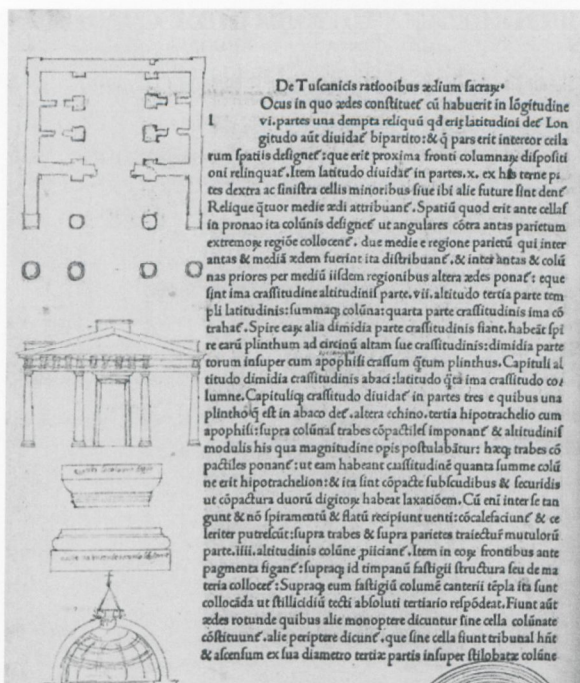 De Tuscanicis ratiooibus ædium sacraꝝ.
Ocus in quo ædes constituet̄ cū habuerit in lōgitudine
l
vi. partes una dempta reliquū qd erit latitudini det̄. Lon
gitudo aūt diuidat̄ bipartito: & q̄ pars erit interior cella
rum spatiis designet̄: que erit proxima fronti columnaꝝ dispositi
oni relinquat̄. Item latitudo diuidat̄ in partes. x. ex his terne p
tes dextra ac sinistra cellis minoribus siue ibi alie future sint dent̄
Relique q̄tuor medie ædi attribuant̄. Spatiū quod erit ante cellas
in pronao ita colūnis designet̄ ut angulares cōtra antas parietum
extremoꝝ regiōe collocent̄. due medie e regione parietū qui inter
antas & mediā ædem fuerint ita distribuant̄. & inter antas & colū
nas priores per mediū iisdem regionibus altera ædes ponat̄: eque
sint ima crassitudine altitudinis parte. vii. altitudo tertia parte tem
pli latitudinis: summaqꝫ colūna: quarta parte crassitudinis ima cō
trahat̄. Spire eaꝝ alia dimidia parte crassitudinis fiant. habeāt spi
re earū plinthum ad circinū altam sue crassitudinis: dimidia parte
torum insuper cum apophisi crassum q̄tum plinthus. Capituli al
titudo dimidia crassitudinis abaci: latitudo q̄tā ima crassitudo co
lumne. Capituliqꝫ crassitudo diuidat̄ in partes tres e quibus una
plintho q̄ est in abaco det̄. altera echino. tertia hipotrachelio cum
apophisi: supra colūnas trabes cōpactiles imponant̄ & altitudinis
modulis his qua magnitudine opis postulabātur: hæqꝫ trabes cō
pactiles ponant̄: ut eam habeant crassitudinē quanta summe colū
ne erit hipotrachelion: & ita sint cōpacte subscudibus & securidis
ut cōpactura duorū digitoꝝ habeat laxatiōem. Cū eni inter se tan
gunt & nō spiramentū & flatū recipiunt uenti: cōcalefaciunt̄ & ce
leriter putrescūt: supra trabes & supra parietes traiectur̄ mutulorū
parte. iiii. altitudinis colūne ꝓiiciant̄. Item in eoꝝ frontibus ante
pagmenta figant̄: supraqꝫ id timpanū fastigii structura seu de ma
teria collocet̄: Supraqꝫ eum fastigiū columē canterii tēpla ita sunt
collocāda ut stillicidiū tecti absoluti tertiario respōdeat. Fiunt aūt
ædes rotunde quibus alie monoptere dicuntur sine cella colūnate
cōstituunt̄. alie periptere dicunt̄. que sine cella fiunt tribunal hūt
& ascensum ex sua diametro tertiæ partis insuper stilobatæ colūne